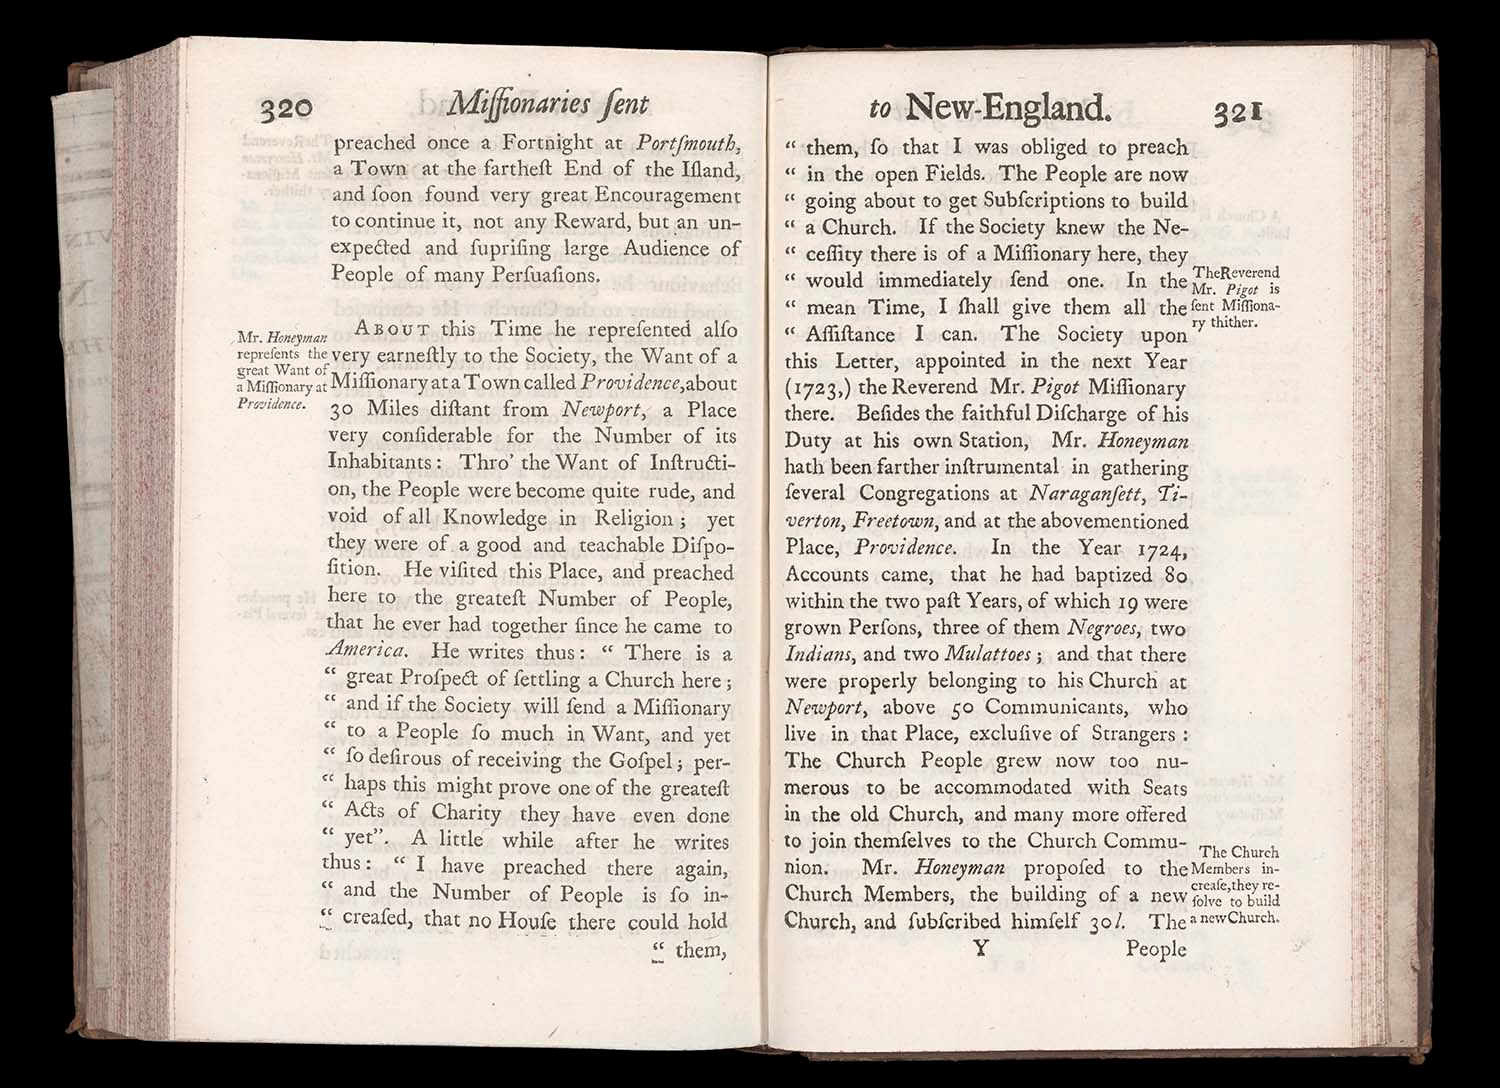 320 Miſſionaries ſent
preached once a Fortnight at Portſmouth,
a Town at the fartheſt End of the Iſland,
and ſoon found very great Encouragement
to continue it, not any Reward, but an un-
expected and ſupriſing large Audience of
People of many Perſuaſions.
Mr. Honeyman
repreſents the
great Want of
a Miſſionary at
Providence.
ABOUT this Time he repreſented alſo
very earneſtly to the Society, the Want of a
Miſſionary at a Town called Providence, about
30 Miles diſtant from Newport, a Place
very conſiderable for the Number of its
Inhabitants: Thro' the Want of Inſtructi-
on, the People were become quite rude, and
void of all Knowledge in Religion; yet
they were of a good and teachable Diſpo-
ſition. He viſited this Place, and preached
here to the greateſt Number of People,
that he ever had together ſince he came to
America. He writes thus: “ There is a
“ great Proſpect of ſettling a Church here;
“ and if the Society will ſend a Miſſionary
“ to a People ſo much in Want, and yet
“ ſo deſirous of receiving the Goſpel; per-
“ haps this might prove one of the greateſt
“ Acts of Charity they have even done
“ yet”. A little while after he writes
thus: “ I have preached there again,
“ and the Number of People is ſo in-
“ creaſed, that no Houſe there could hold
“ them,
to New-England. 321
“ them, ſo that I was obliged to preach
“ in the open Fields. The People are now
“ going about to get Subſcriptions to build
“ a Church. If the Society knew the Ne-
“ ceſſity there is of a Miſſionary here, they
“ would immediately ſend one. In the
“ mean Time, I ſhall give them all the
“ Aſſiſtance I can. The Society upon
this Letter, appointed in the next Year
(1723,) the Reverend Mr. Pigot Miſſionary
there. Beſides the faithful Diſcharge of his
Duty at his own Station, Mr. Honeyman
hath been farther inſtrumental in gathering
ſeveral Congregations at Naraganſett, Ti-
verton, Freetown, and at the abovementioned
Place, Providence. In the Year 1724,
Accounts came, that he had baptized 80
within the two paſt Years, of which 19 were
grown Perſons, three of them Negroes, two
Indians, and two Mulattoes; and that there
were properly belonging to his Church at
Newport, above 50 Communicants, who
live in that Place, excluſive of Strangers:
The Church People grew now too nu-
merous to be accommodated with Seats
in the old Church, and many more offered
to join themſelves to the Church Commu-
nion. Mr. Honeyman propoſed to the
Church Members, the building of a new
Church, and ſubſcribed himſelf 30 l. The
Y People
The Reverend
Mr. Pigot is
ſent Miſſiona-
ry thither.
The Church
Members in-
creaſe, they re-
ſolve to build
a new Church.